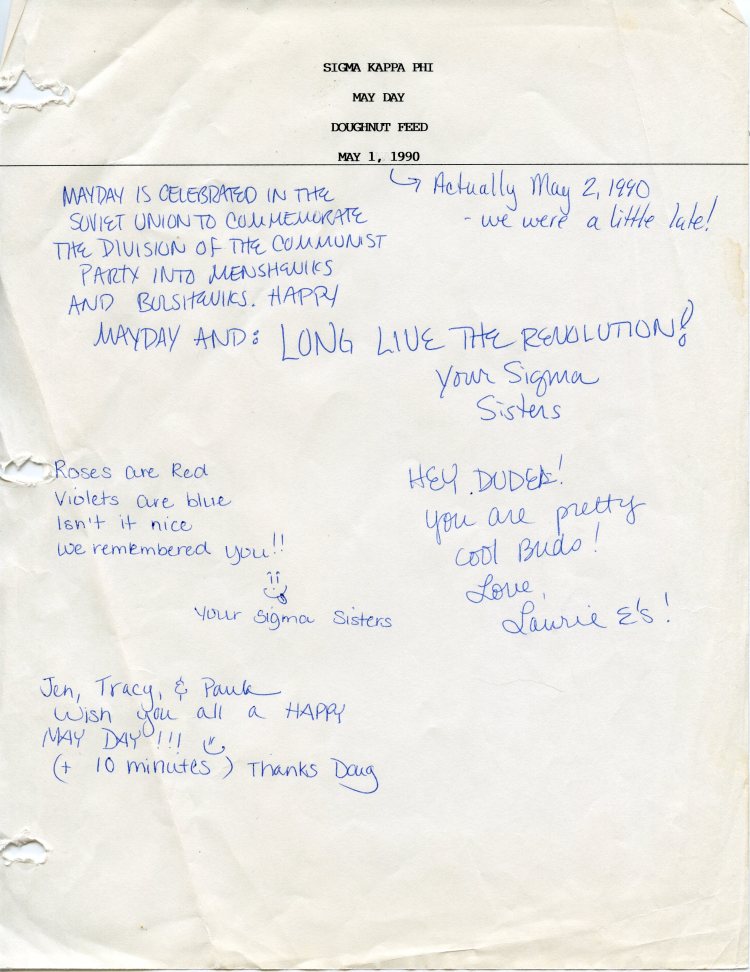 SIGMA KAPPA PHI
MAY DAY
DOUGHNUT FEED
MAY 1, 1990
Actually May 2, 1990
- we were a little late!
MAYDAY IS CELEBRATED IN THE
SOVIET UNION TO COMMEMORATE
THE DIVISION OF THE COMMUNIST
PARTY INTO MENSHEVIKS
AND BOLSHEVIKS. HAPPY
MAYDAY AND: LONG LIVE THE REVOLUTION!
Your Sigma
Sisters
Roses are Red
Violets are blue
Isn't it nice
we remembered you!!
Your Sigma Sisters
HEY DUDES!
You are pretty
cool Buds!
Love,
Laurie E's!
Jen, Tracy, & Paula
Wish you all a HAPPY
MAY DAY!!!
(+ 10 minutes) Thanks Doug